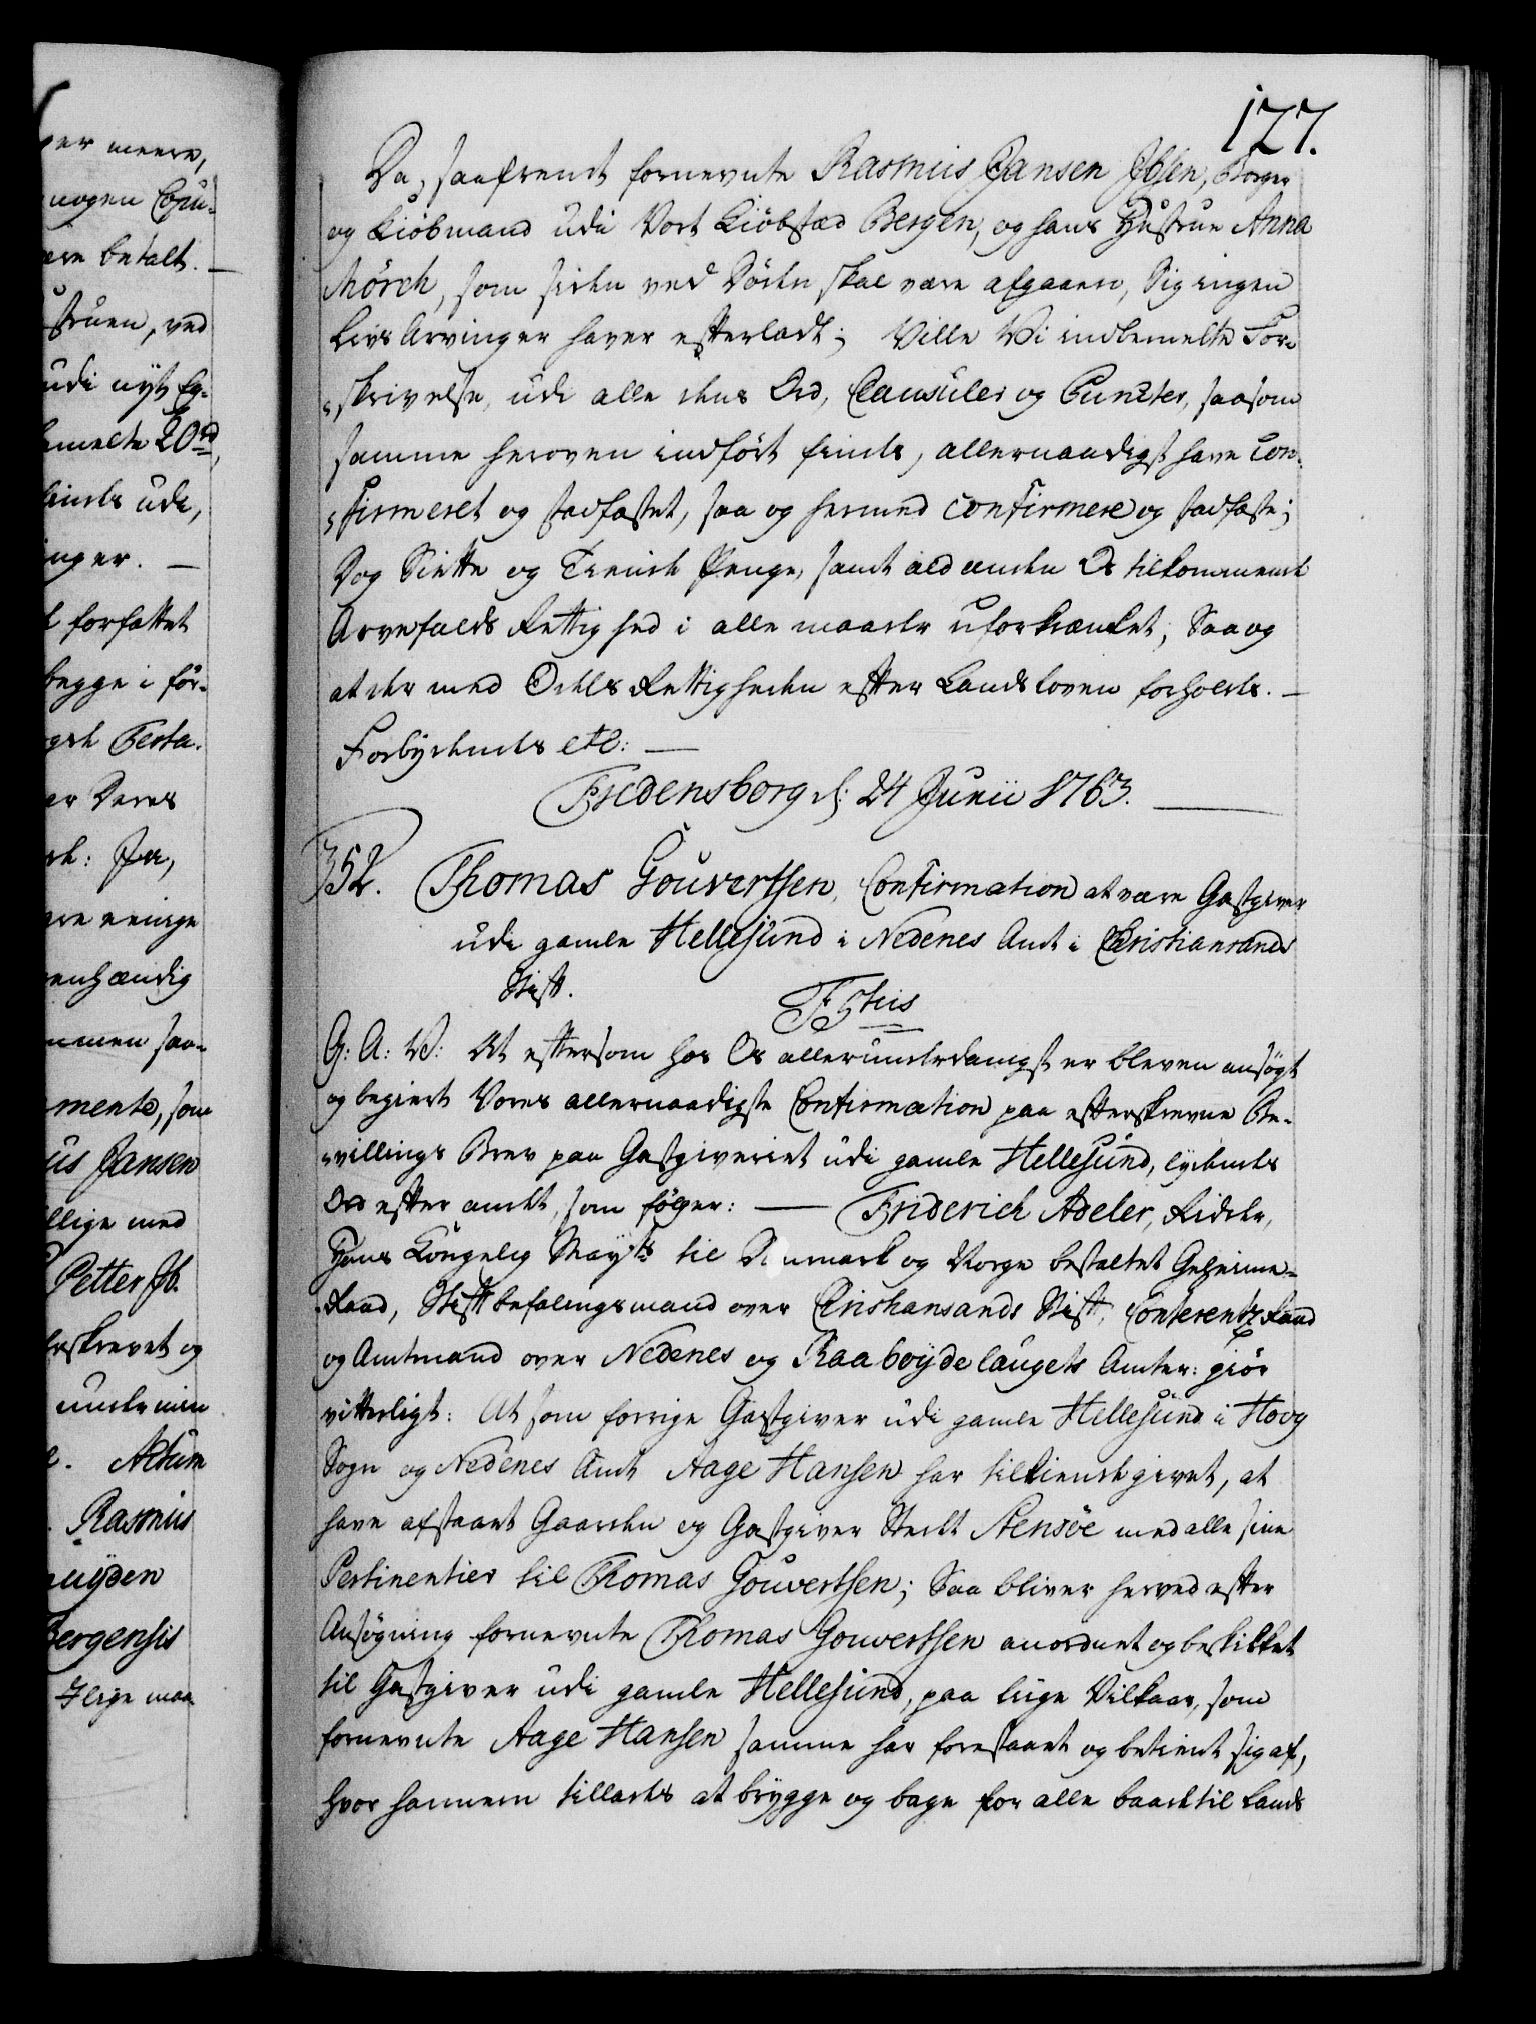 177.
Da, saafremt fornevnte Rasmus Jansen Ibsen, Borger
og Kiöbmand udi Vort Kiöbsted Bergen, og hans Hustrue Anna
Mörch, som siden ved Döden skal være afgaaen, Sig ingen
Livs Arvinger haver efterladt; Ville Vi indbemelte For-
skrivelse, udi alle dens Ord, Clausuler og Puncter, saasom
samme heroven indfört findes, allernaadigst have con-
firmeret og stadfæstet, saa og hermed confirmere og stadfæste;
Dog Siette og Tiende Penge, samt ald anden Os tilkommende
Arvefalds Rettighed i alle maader uforkrænket; Saa og
at der med Odels Rettigheden efter Landsloven forholdes. —
Forbydendes etc: —
Fredensborg d: 24 Junii 1763. —
352. Thomas Gouvertsen, Confirmation at være Gastgiver
udi gamle Hellesund i Nedenes Amt i Christiansands
Stift.
F 5tus
G: A: V: At eftersom hos Os allerunderdanigst er bleven ansögt
og begiert Vores allernaadigste Confirmation paa efterskrevne Be-
villings Brev paa Gastgiveriet udi gamle Hellesund, lydendes
Ord efter andet, som fölger: — Friderich Adeler, Ridder,
Hans Kongelig Mayts til Danmark og Norge bestalter Geheime-
Raad, Stiftbefalingsmand over Christiansands Stift, Conferentz Raad
og Amtmand over Nedenes og Raaböydelaugets Amter: giör
vitterligt: At som forrige Gastgiver udi gamle Hellesund i Hovg
Sogn og Nedenes Amt Aage Hansen har tilkiendegivet, at
have afstaaet Gaarden og Gastgiver Stedet Aensöe med alle sine
Pertinentier til Thomas Gouvertsen; Saa bliver herved efter
Ansögning fornevnte Thomas Gouvertsen anordnet og beskikket
til Gastgiver udi gamle Hellesund, paa liige Vilkaar, som
fornevnte Aage Hansen samme har forestaaet og betient sig af,
hvor hannem tillades at brygge og bage for alle baade til Lands
ver meere,
nogen Copu-
ere betalt. —
struen, ved
udi nyt Eg-
bemelte 20rd,
findes udi,
inger. —
forfattet
begge i för-
Testa-
er Deres
Ja,
enhændig
ommen saa-
mente, som
us Jansen
llige med
Petter Jb.
erskrevet og
under min
Actum
Rasmus
uyden
Bergensis
Ilige maa